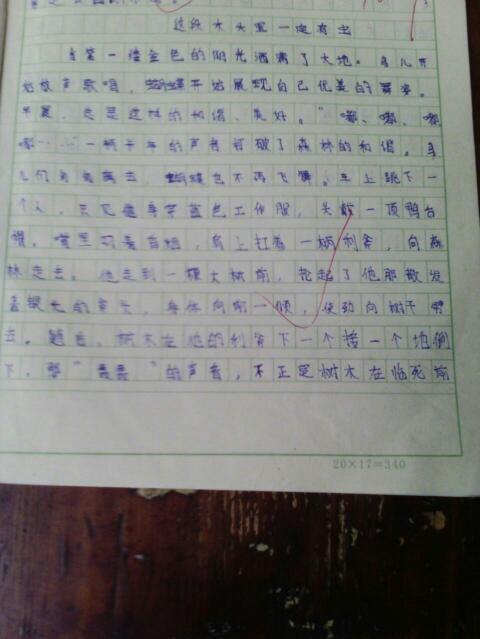 这段木头里一定有虫
当第一缕金色的阳光洒满了大地。鸟儿开
始放声歌唱,蝴蝶开始展现自己优美的舞姿。
早晨,总是这样的和谐、美好。"嘟、嘟、嘟
嘟……"一辆卡车的声音打破了森林的和谐。鸟
儿们飞走了,蝴蝶也不再飞舞。车上跳下一
个人,只见他身穿蓝色工作服,头戴一顶鸭舌
帽。嘴里叼着香烟,肩上扛着一柄利斧,向森
林走去。他走到一棵大树前,抡起了他那散发
着银光的斧头,身体向前一倾,使劲向树干劈
去。随后,树木在他的利斧下一个接一个地倒
下,那"轰轰"的声音,不正是树木在临死前
20×17=340